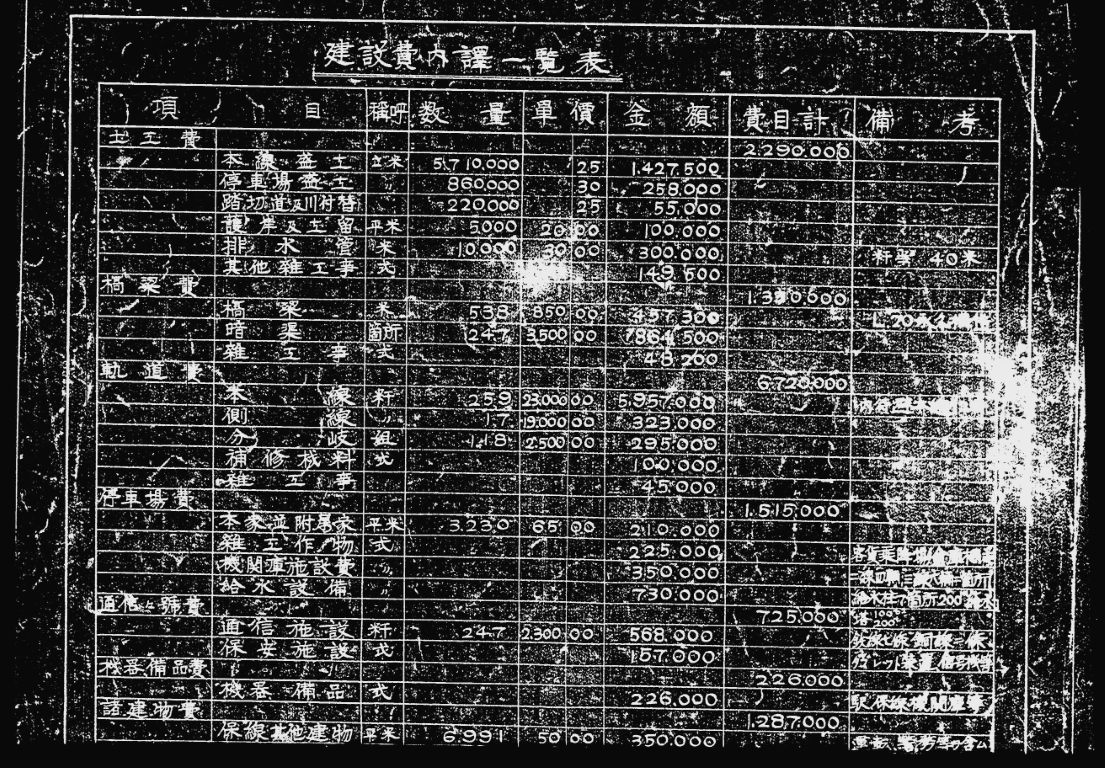 建設費内譯一覧表
項 目 稱呼 数量 單價 金額 費目計 備考
土工費 2.290.000
本線盛土 立米 5.710.000 25 1.427.500
停車場盛土 〃 860.000 30 258.000
踏切道及川村替 〃 220.000 25 55.000
護岸及土留 平米 5.000 20 00 100.000
排水管 米 10.000 30 00 300.000 粁当 40米
其他雜工事 式 149.500
橋梁費
橋梁 米 538 850 00 457.300
暗渠 箇所 247 3.500 00 864.500
雜工事 式 48.200
軌道費 6.720.000
本線 粁 259 23.000 00 5.957.000
側線 〃 17 19.000 00 323.000
分岐 組 118 2.500 00 295.000
補修材料 式 100.000
雜工事 45.000
停車場費 1.515.000
本家並附属家 平米 3.230 65 00 210.000
雜工作物 式 225.000
機関庫施設費 〃 350.000
給水設備 〃 730.000 給水柱7箇所200
通信々號費 725.000
通信施設 粁 247 2.300 00 568.000
保安施設 式 157.000
機器備品費 226.000
機器備品 式 226.000 駅.保線.機関庫等
諸建物費 1.287.000
保線其他建物 平米 6.991 50 00 350.000